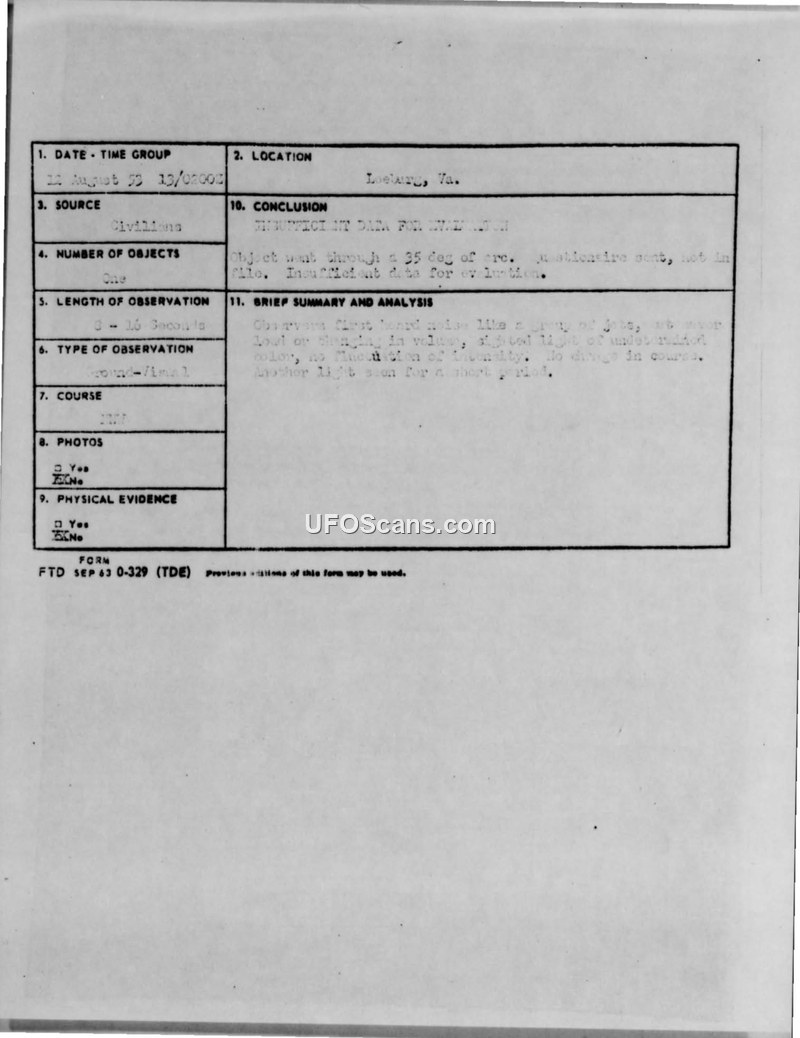 1. DATE - TIME GROUP
12 August 53 13/0200Z
2. LOCATION
Leesburg, Va.
3. SOURCE
Civilians
10. CONCLUSION
INSUFFICIENT DATA FOR EVALUATION
4. NUMBER OF OBJECTS
One
Object went through a 35 deg of arc. Questionaire sent, not in
file. Insufficient data for evaluation.
5. LENGTH OF OBSERVATION
- 16 Seconds
11. BRIEF SUMMARY AND ANALYSIS
Observers first heard noise like a group of jets, not never
loud or changing in volume, sighted light of undetermined
color, no fluctuation of intensity. No change in course.
Another light seen for a short period.
6. TYPE OF OBSERVATION
Ground-Visual
7. COURSE
8. PHOTOS
□ Yes
No
9. PHYSICAL EVIDENCE
□ Yes
No
FORM
FTD SEP 63 0-329 (TDE) Previous editions of this form may be used.
UFOScans.com